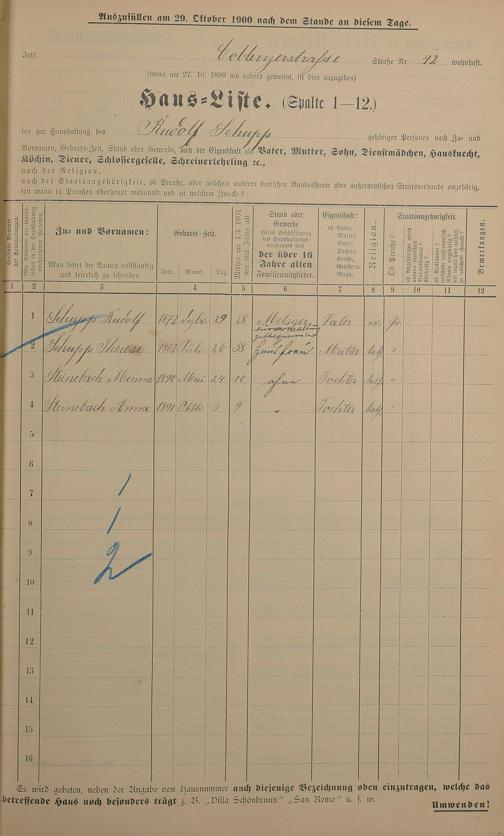 Auszufüllen am 29. Oktober 1900 nach dem Stande an diesem Tage.
Jetzt Coblenzerstrasse Straße Nr. 12 wohnhaft.
(wenn am 27. 10. 1899 wo anders gewohnt, ist dies anzugeben)
Haus-Liste. (Spalte 1—12.)
der zur Haushaltung des Rudolf Schupp gehörigen Personen nach Zu- und
Vornamen, Geburts-Zeit, Stand oder Gewerbe, nach der Eigenschaft als Vater, Mutter, Sohn, Dienstmädchen, Hausknecht,
Köchin, Diener, Schlossergeselle, Schreinerlehrling ꝛc.,
nach der Religion,
nach der Staatsangehörigkeit, ob Preuße, oder welchem anderen deutschen Bundesstaate oder außerdeutschen Staatsverbande angehörig,
seit wann in Preußen überhaupt wohnhaft und zu welchem Zwecke?
Zu- und Vornamen:
Man bittet die Namen vollständig
und leserlich zu schreiben.
Geburts-Zeit.
Jahr. Monat. Tag.
Stand oder
Gewerbe
der über 16
Jahre alten
Familienmitglieder.
Eigenschaft:
ob Vater,
Mutter,
Sohn,
Tochter
Religion.
Ob Preuße?
Staatsangehörigkeit.
Bemerkungen.
1 2 3 4 5 6 7 8 9 10 11 12
1 Schupp Rudolf 1872 29 28 Metzger Vater ev. pr.
2 Schupp Therese 1862 26 38 Hausfrau Mutter kath "
3 Steinebach Minna 1890 Mai 24 10 ohne Tochter kath "
4 Steinebach Anna 1891 3 9 " Tochter kath "
5
6
7 1
8 1
9 2
10
11
12
13
14
15
16
Es wird gebeten, neben der Angabe von Hausnummer auch diejenige Bezeichnung oben einzutragen, welche das
betreffende Haus noch besonders trägt z. B. "Villa Schönbrunn" "San Remo" u. s. w.
Umwenden!